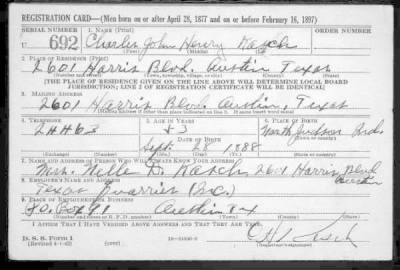 REGISTRATION CARD—(Men born on or after April 28, 1877 and on or before February 16, 1897)
SERIAL NUMBER 1. NAME (Print) ORDER NUMBER
U 692 Charles John Henry Kasch
(First) (Middle) (Last)
2. PLACE OF RESIDENCE (Print)
2601 Harris Blvd. Austin Texas
(Number and street) (Town, township, village, or city) (County) (State)
[THE PLACE OF RESIDENCE GIVEN ON THE LINE ABOVE WILL DETERMINE LOCAL BOARD
JURISDICTION; LINE 2 OF REGISTRATION CERTIFICATE WILL BE IDENTICAL]
3. MAILING ADDRESS
2601 Harris Blvd. Austin, Texas
[Mailing address if other than place indicated on line 2. If same insert word same]
4. TELEPHONE 5. AGE IN YEARS 6. PLACE OF BIRTH
53
DATE OF BIRTH North Judson
Sept. 28 1888 Inds.
(Exchange) (Number) (Mo.) (Day) (Yr.) (State or country)
7. NAME AND ADDRESS OF PERSON WHO WILL ALWAYS KNOW YOUR ADDRESS
Mrs. Nelle D. Kasch 2601 Harris Blvd
Austin
8. EMPLOYER'S NAME AND ADDRESS
Texas Quarries Inc.
9. PLACE OF EMPLOYMENT OR BUSINESS
P.O. Box 91 Austin Tex
(Number and street or R. F. D. number) (Town) (County) (State)
I AFFIRM THAT I HAVE VERIFIED ABOVE ANSWERS AND THAT THEY ARE TRUE.
D. S. S. FORM 1
(Revised 4-1-42) (over) C H Kasch